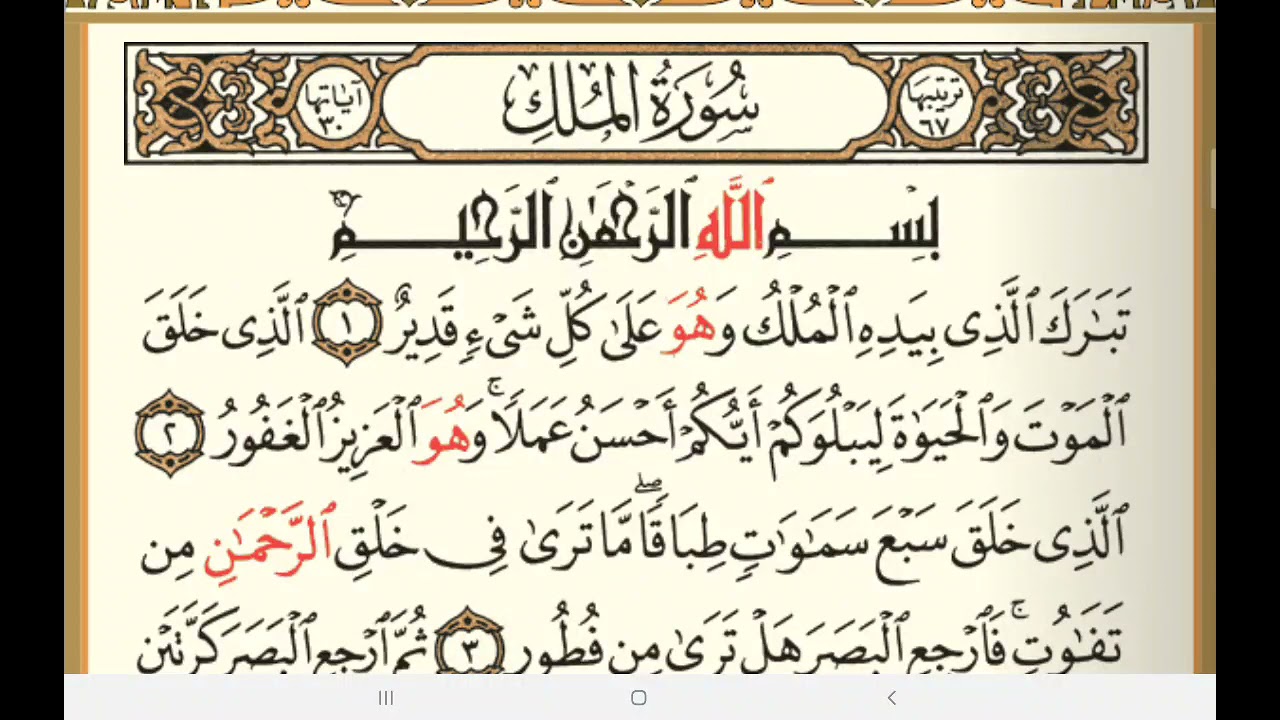 ترتيبها ٦٧
سُورَةُ الْمُلْكِ
آياتها ٣٠
بِسْمِ ٱللَّهِ ٱلرَّحْمَٰنِ ٱلرَّحِيمِ
تَبَٰرَكَ ٱلَّذِى بِيَدِهِ ٱلْمُلْكُ وَهُوَ عَلَىٰ كُلِّ شَىْءٍ قَدِيرٌ ١ ٱلَّذِى خَلَقَ
ٱلْمَوْتَ وَٱلْحَيَوٰةَ لِيَبْلُوَكُمْ أَيُّكُمْ أَحْسَنُ عَمَلًا ۚ وَهُوَ ٱلْعَزِيزُ ٱلْغَفُورُ ٢
ٱلَّذِى خَلَقَ سَبْعَ سَمَٰوَٰتٍ طِبَاقًا ۖ مَّا تَرَىٰ فِى خَلْقِ ٱلرَّحْمَٰنِ مِن
تَفَٰوُتٍ ۖ فَٱرْجِعِ ٱلْبَصَرَ هَلْ تَرَىٰ مِن فُطُورٍ ٣ ثُمَّ ٱرْجِعِ ٱلْبَصَرَ كَرَّتَيْنِ